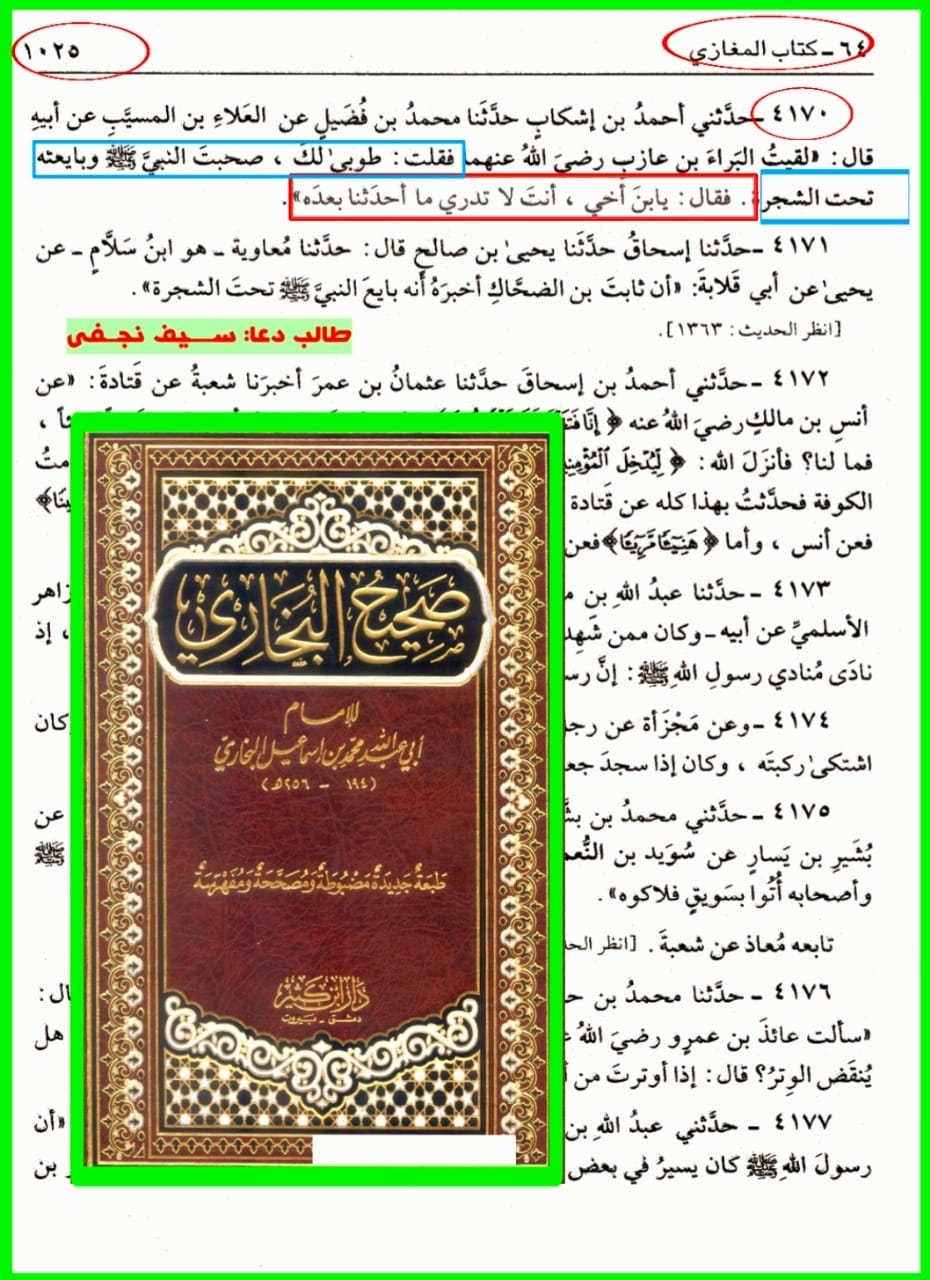 ٦٤ - كتاب المغازي
١٠٢٥
٤١٧٠ - حدَّثني أحمدُ بن إشكابٍ حدَّثَنا محمدُ بن فُضَيلٍ عن العَلاءِ بن المسيَّبِ عن أبيهِ
قال: «لقيتُ البَراءَ بن عازبٍ رضيَ اللهُ عنهما فقلت: طوبىٰ لكَ ، صحبتَ النبيَّ ﷺ وبايعته
تحت الشجرة. فقال: يابنَ أخي ، أنتَ لا تدري ما أحدَثنا بعدَه».
٤١٧١ - حدَّثنا إسحاقُ حدَّثَنا يحيىٰ بن صالحٍ قال: حدَّثنا مُعاوية - هو ابنُ سَلَّامٍ - عن
يحيىٰ عن أبي قلابةَ: «أن ثابتَ بن الضحَّاكِ أخبرَهُ أنه بايعَ النبيَّ ﷺ تحتَ الشجرة».
[انظر الحديث: ١٣٦٣].
طالب دعا: سيف نجفى
٤١٧٢ - حدَّثني أحمدُ بن إسحاقَ حدَّثنا عثمانُ بن عمرَ أخبرَنا شعبةُ عن قَتادةَ: «عن
أنسِ بن مالكٍ رضيَ اللهُ عنه ﴿ إِنَّا
فما لنا؟ فأنزَلَ الله: ﴿ لِيُدْخِلَ
الكوفة فحدَّثتُ بهذا كله عن قَتادة
فعن أنس ، وأما ﴿ هَنِيئًا مَّرِيئًا ﴾ فعن
٤١٧٣ - حدَّثنا عبدُ اللهِ بن
زاهر
الأسلميِّ عن أبيه - وكان ممن شَهِد
، إذ
نادَى مُنادي رسولِ اللهِ ﷺ: إنَّ
٤١٧٤ - وعن مَجْزَأة عن
كان
اشتكىٰ ركبتَه ، وكان إذا سجدَ
٤١٧٥ - حدَّثني محمدُ بن
عن
بُشَيرِ بن يَسارٍ عن سُوَيد بن
ﷺ
وأصحابه أُتُوا بسَويقٍ فلاكوه».
تابعه مُعاذ عن شعبةَ. [انظر
٤١٧٦ - حدَّثنا محمدُ بن
«سألت عائذَ بن عمرٍو رضيَ اللهُ
هل
يُنقَض الوِترُ؟ قال: إذا أوترتَ من
٤١٧٧ - حدَّثني عبدُ اللهِ بن
«أن
رسولَ اللهِ ﷺ كان يسيرُ في بعض
بن
صَحِيحُ البُخَارِيّ
للإمام
أبي عبد الله محمد بن اسماعيل البخاري
(١٩٤ - ٢٥٦هـ)
طَبعَة جَديدَة مَضبُوطَة وَمُصَحَّحَة وَمُفَهرَسَة
دار ابن كثير
دمشق - بيروت